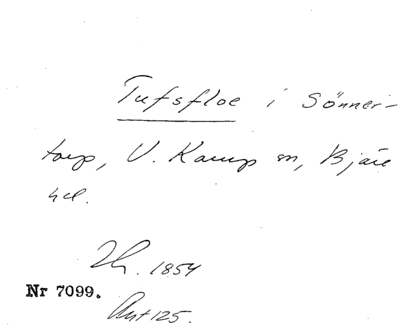 Tufsfloe i Sönner-
torp, V. Karup sn, Bjäre
hd.
Lh. 1854
Nr 7099.
Ant 125.